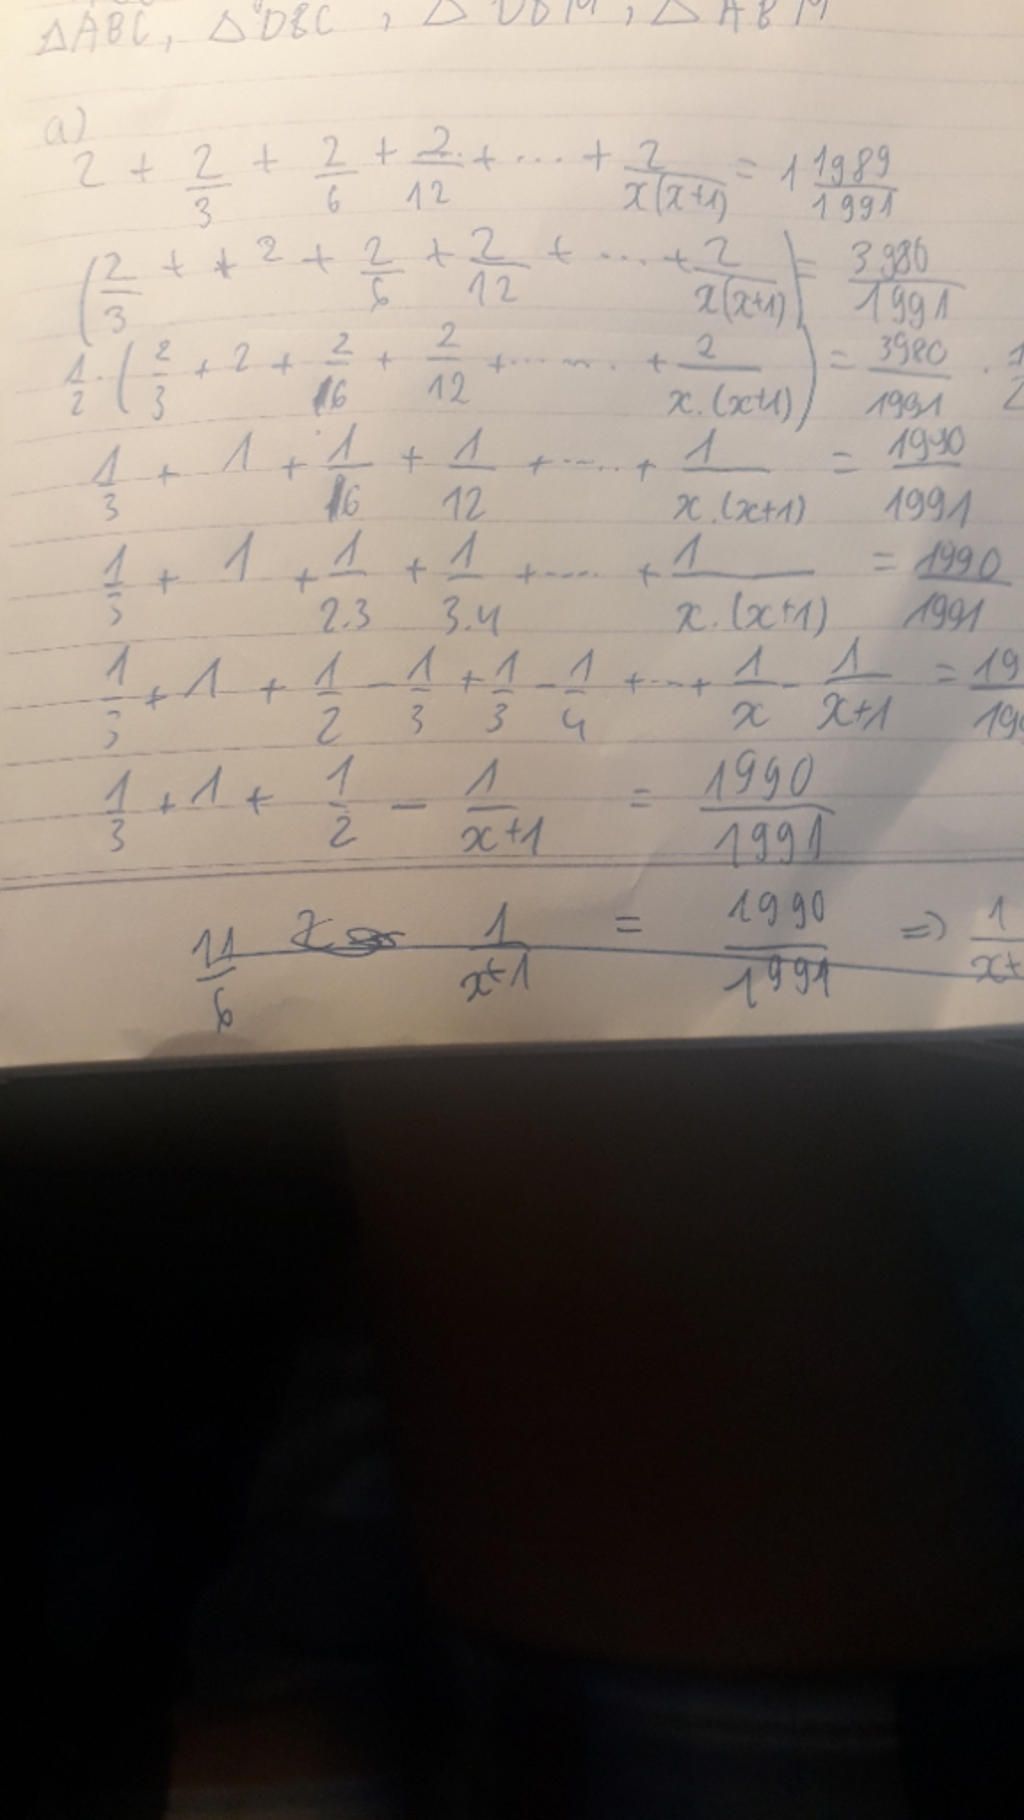 ΔABC, ΔDBC, ΔDBM, ΔABM
a)
2 + 2/3 + 2/6 + 2/12 + ... + 2/x(x+1) = 1 1989/1991
(2/3 + + 2 + 2/6 + 2/12 + ... + 2/x(x+1)) = 3980/1991
1/2 . (2/3 + 2 + 2/6 + 2/12 + ...... + 2/x.(x+1)) = 3980/1991 . 1/2
1/3 + 1 + 1/6 + 1/12 + ..... + 1/x.(x+1) = 1990/1991
1/3 + 1 + 1/2.3 + 1/3.4 + .... + 1/x.(x+1) = 1990/1991
1/3 + 1 + 1/2 - 1/3 + 1/3 - 1/4 + ... + 1/x - 1/x+1 = 19/19
1/3 + 1 + 1/2 - 1/x+1 = 1990/1991
11/6 1/x+1 = 1990/1991 => 1/x+